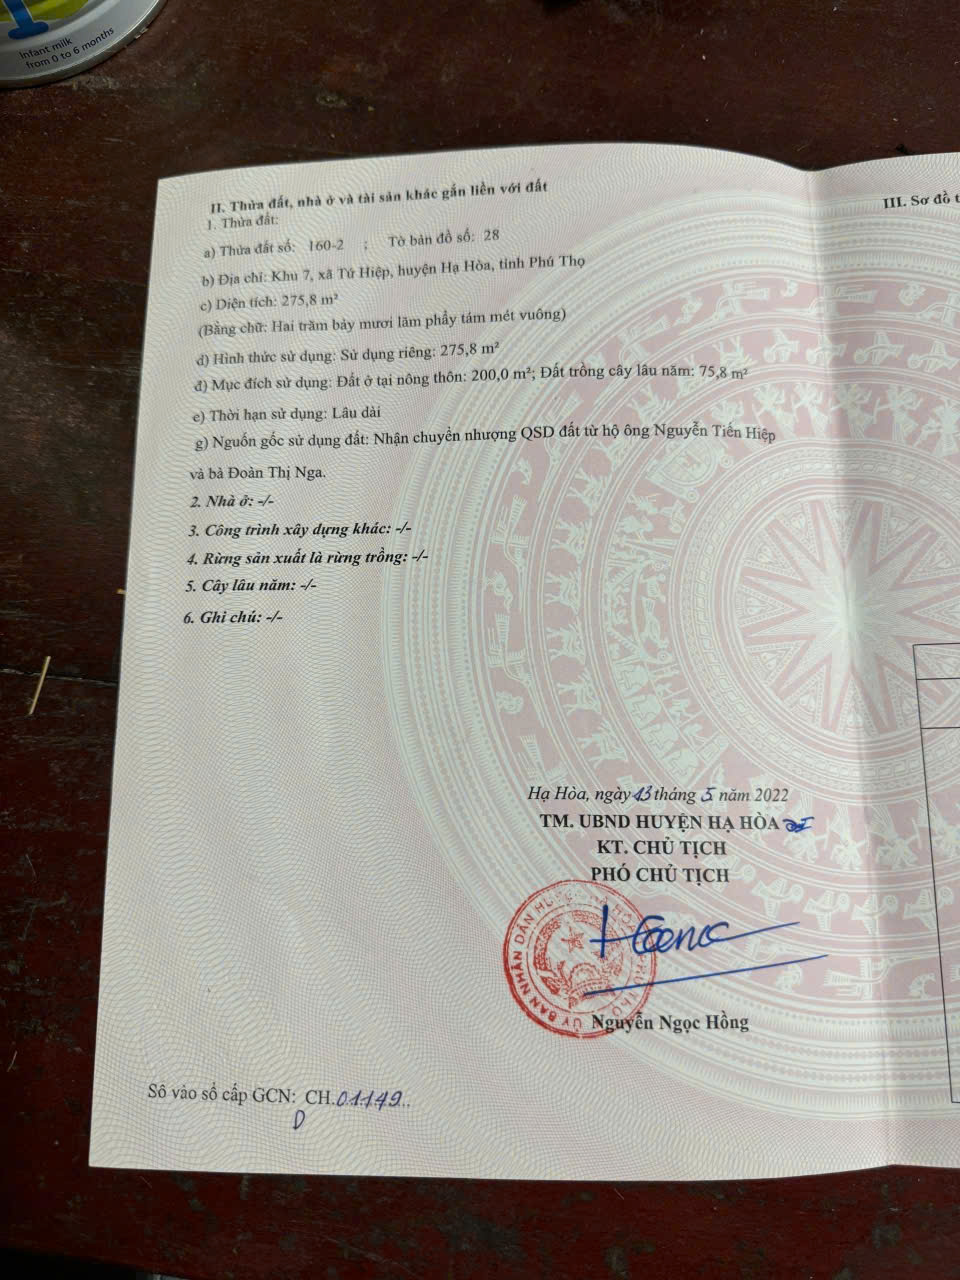 Infant milk
from 0 to 6 months
II. Thửa đất, nhà ở và tài sản khác gắn liền với đất
1. Thửa đất:
a) Thửa đất số: 160-2 ; Tờ bản đồ số: 28
b) Địa chỉ: Khu 7, xã Tứ Hiệp, huyện Hạ Hòa, tỉnh Phú Thọ
c) Diện tích: 275,8 m²
(Bằng chữ: Hai trăm bảy mươi lăm phẩy tám mét vuông)
d) Hình thức sử dụng: Sử dụng riêng: 275,8 m²
đ) Mục đích sử dụng: Đất ở tại nông thôn: 200,0 m²; Đất trồng cây lâu năm: 75,8 m²
e) Thời hạn sử dụng: Lâu dài
g) Nguồn gốc sử dụng đất: Nhận chuyển nhượng QSD đất từ hộ ông Nguyễn Tiến Hiệp
và bà Đoàn Thị Nga.
2. Nhà ở: -/-
3. Công trình xây dựng khác: -/-
4. Rừng sản xuất là rừng trồng: -/-
5. Cây lâu năm: -/-
6. Ghi chú: -/-
III. Sơ đồ t
Hạ Hòa, ngày 13 tháng 5 năm 2022
TM. UBND HUYỆN HẠ HÒA
KT. CHỦ TỊCH
PHÓ CHỦ TỊCH
ỦY BAN NHÂN DÂN HUYỆN HẠ HÒA PHÚ THỌ
Nguyễn Ngọc Hồng
Số vào sổ cấp GCN: CH.01149..
D